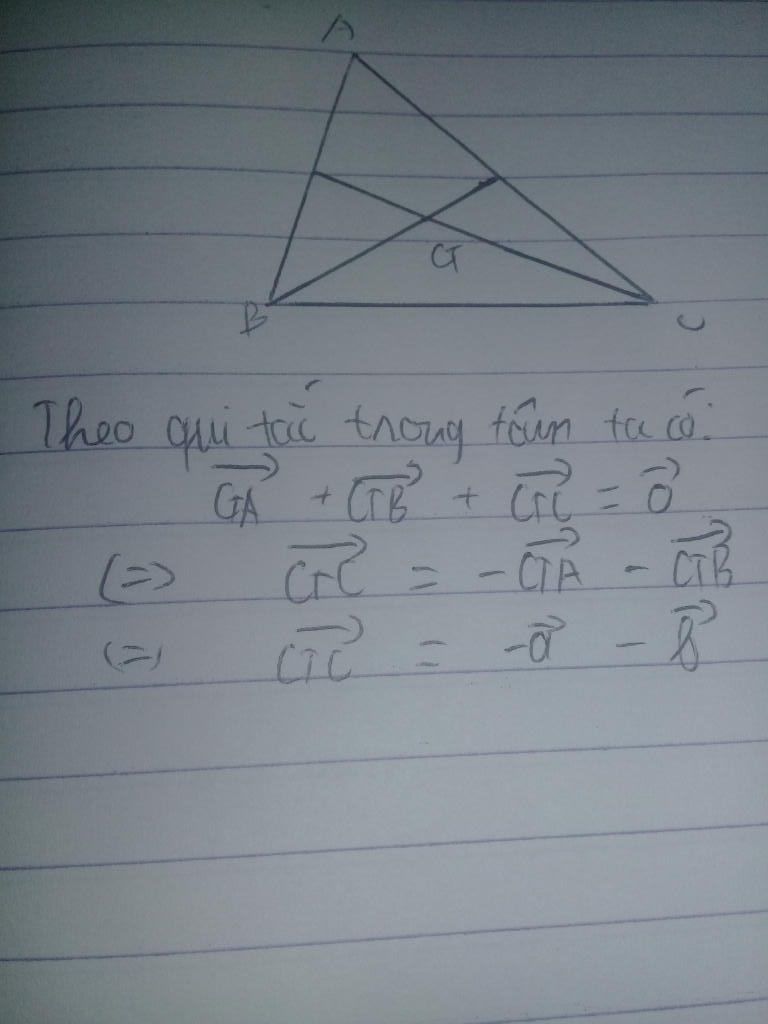 A
G
B
C
Theo qui tắc trong tâm ta có:
$\overrightarrow{GA} + \overrightarrow{GB} + \overrightarrow{GC} = \vec{0}$
(=> $\overrightarrow{GC} = -\overrightarrow{GA} - \overrightarrow{GB}$
(=) $\overrightarrow{GC} = -\vec{a} - \vec{b}$